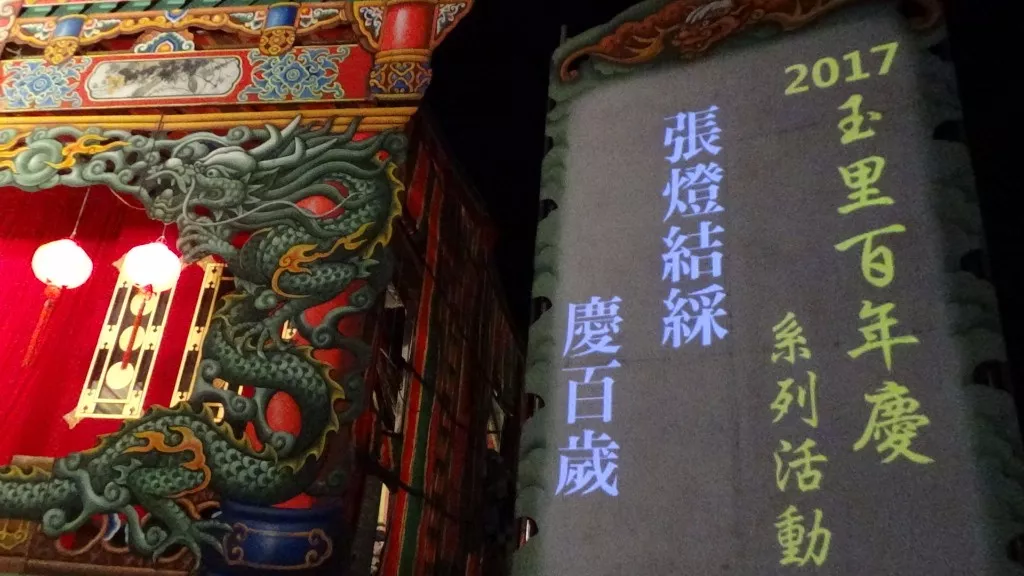 2017
玉里百年慶
系列活動
張燈結綵
慶百歲